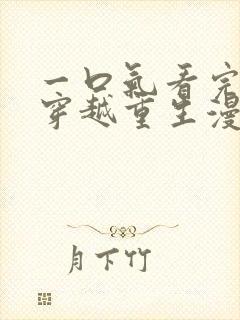 一口氣看完
穿越重生漫
月下竹